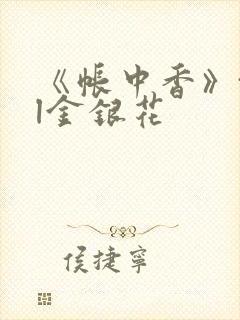 《帐中香》
|金银花
侯捷宁